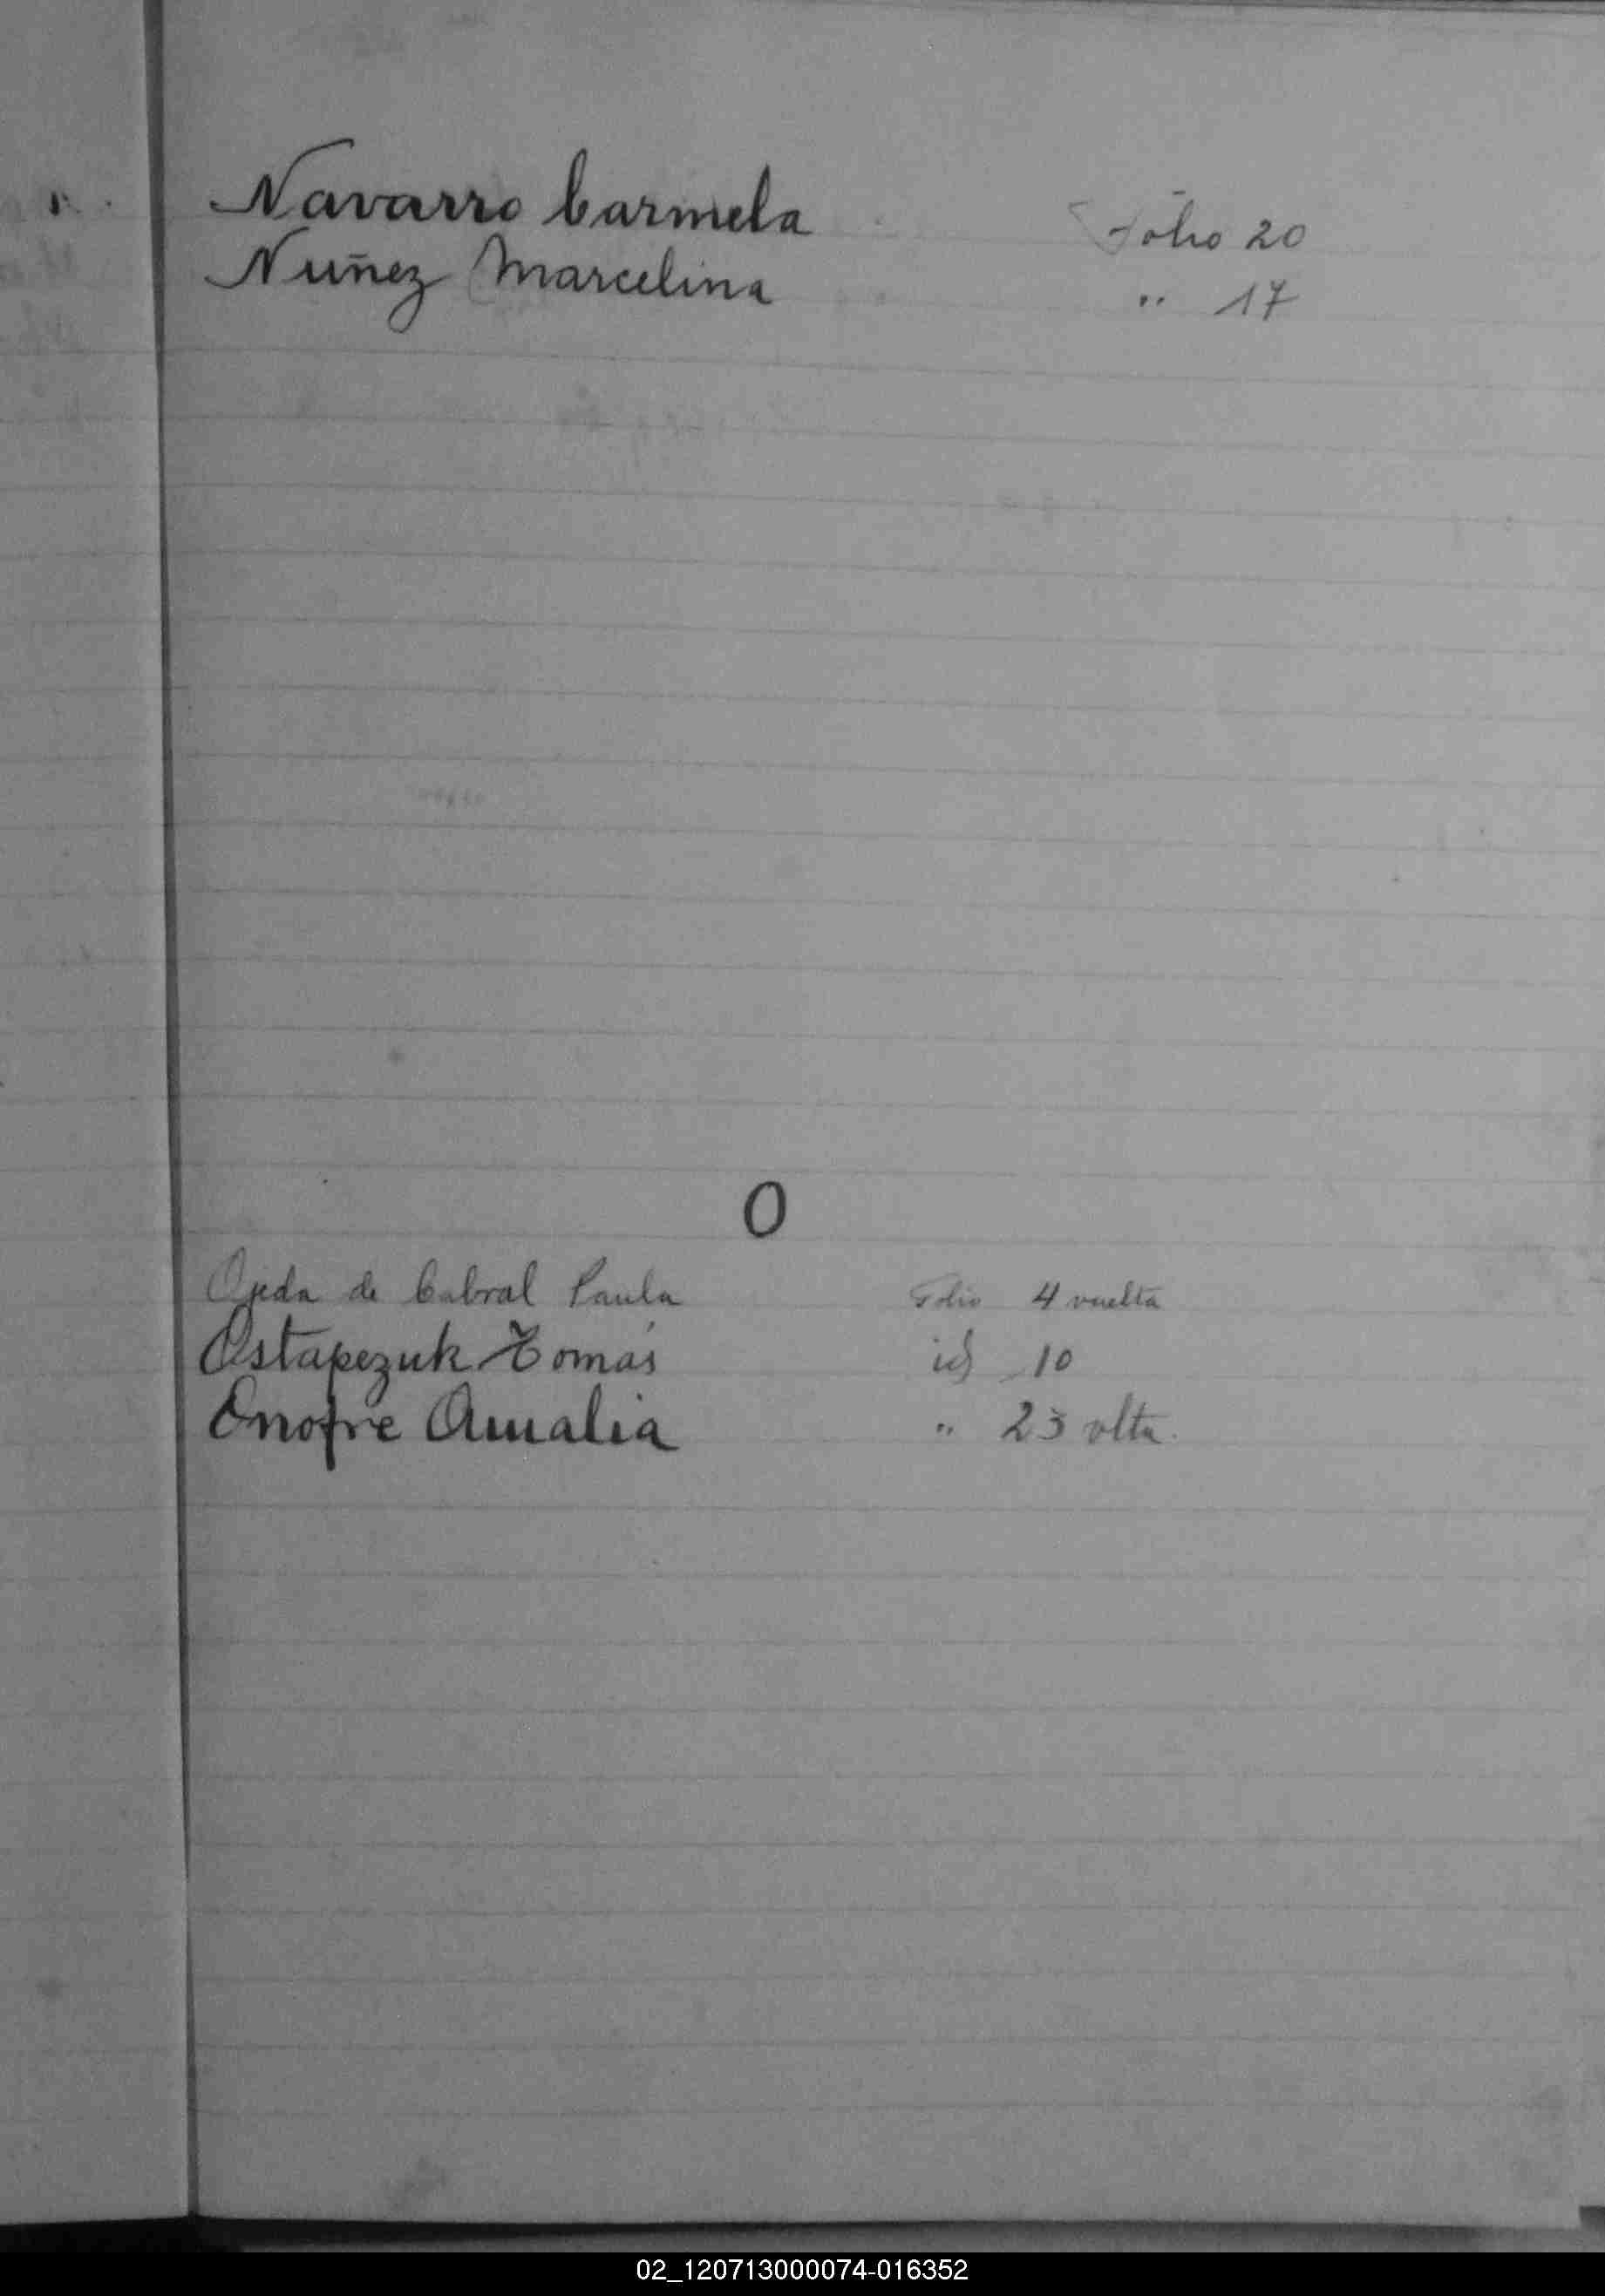 Navarro Carmela Folio 20
Nuñez Marcelina " 17
O
Ojeda de Cabral Paula Folio 4 vuelta
Ostapezuk Tomás id 10
Onofre Amalia " 23 vlta.
02_120713000074-016352